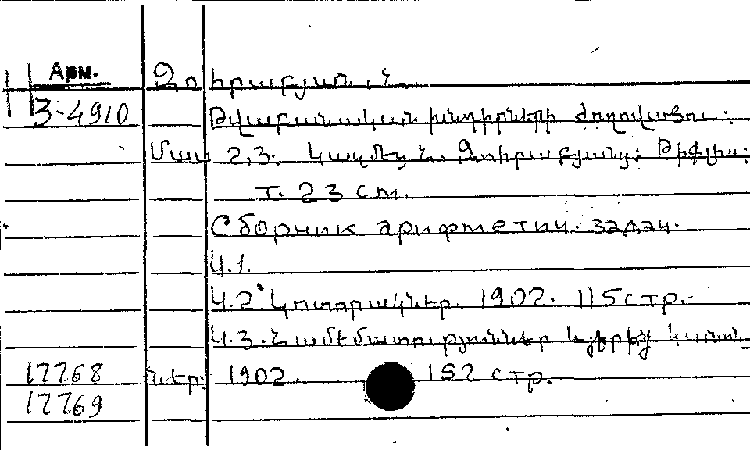 Арм.
Զոհրաբյան, Ն.
3-4910 Թվաբանական խնդիրների ժողովածու:
Մաս 2,3. Կազմեց Ն. Զոհրաբյանց: Թիֆլիս:
т. 23 cm.
Сборник арифметич. задач.
Ч.1.
Ч.2. Կոտորակներ. 1902. 115 стр.
Ч.3. Համեմատություններ կանոն
17768 ներ. 1902. 152 стр.
17769